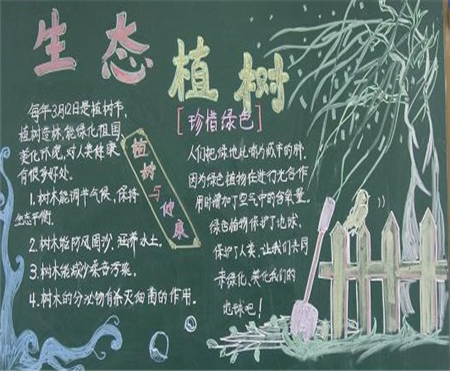 生态
植树
每年3月12日是植树节,
植树造林,能绿化祖国
美化环境,对人类健康
有很多好处。
1.树木能调节气候,保持
生态平衡。
2.树木能防风固沙,涵养水土。
3.树木能减少噪音污染。
4.树木的分泌物有杀灭细菌的作用。
植树与健康
[珍惜绿色]
人们把绿地比喻为城市的肺,
因为绿色植物在进行光合作
用时增加了空气中的含氧量。
绿色植物保护了地球,
保护了人类,让我们共同
来绿化、美化我们的
地球吧!